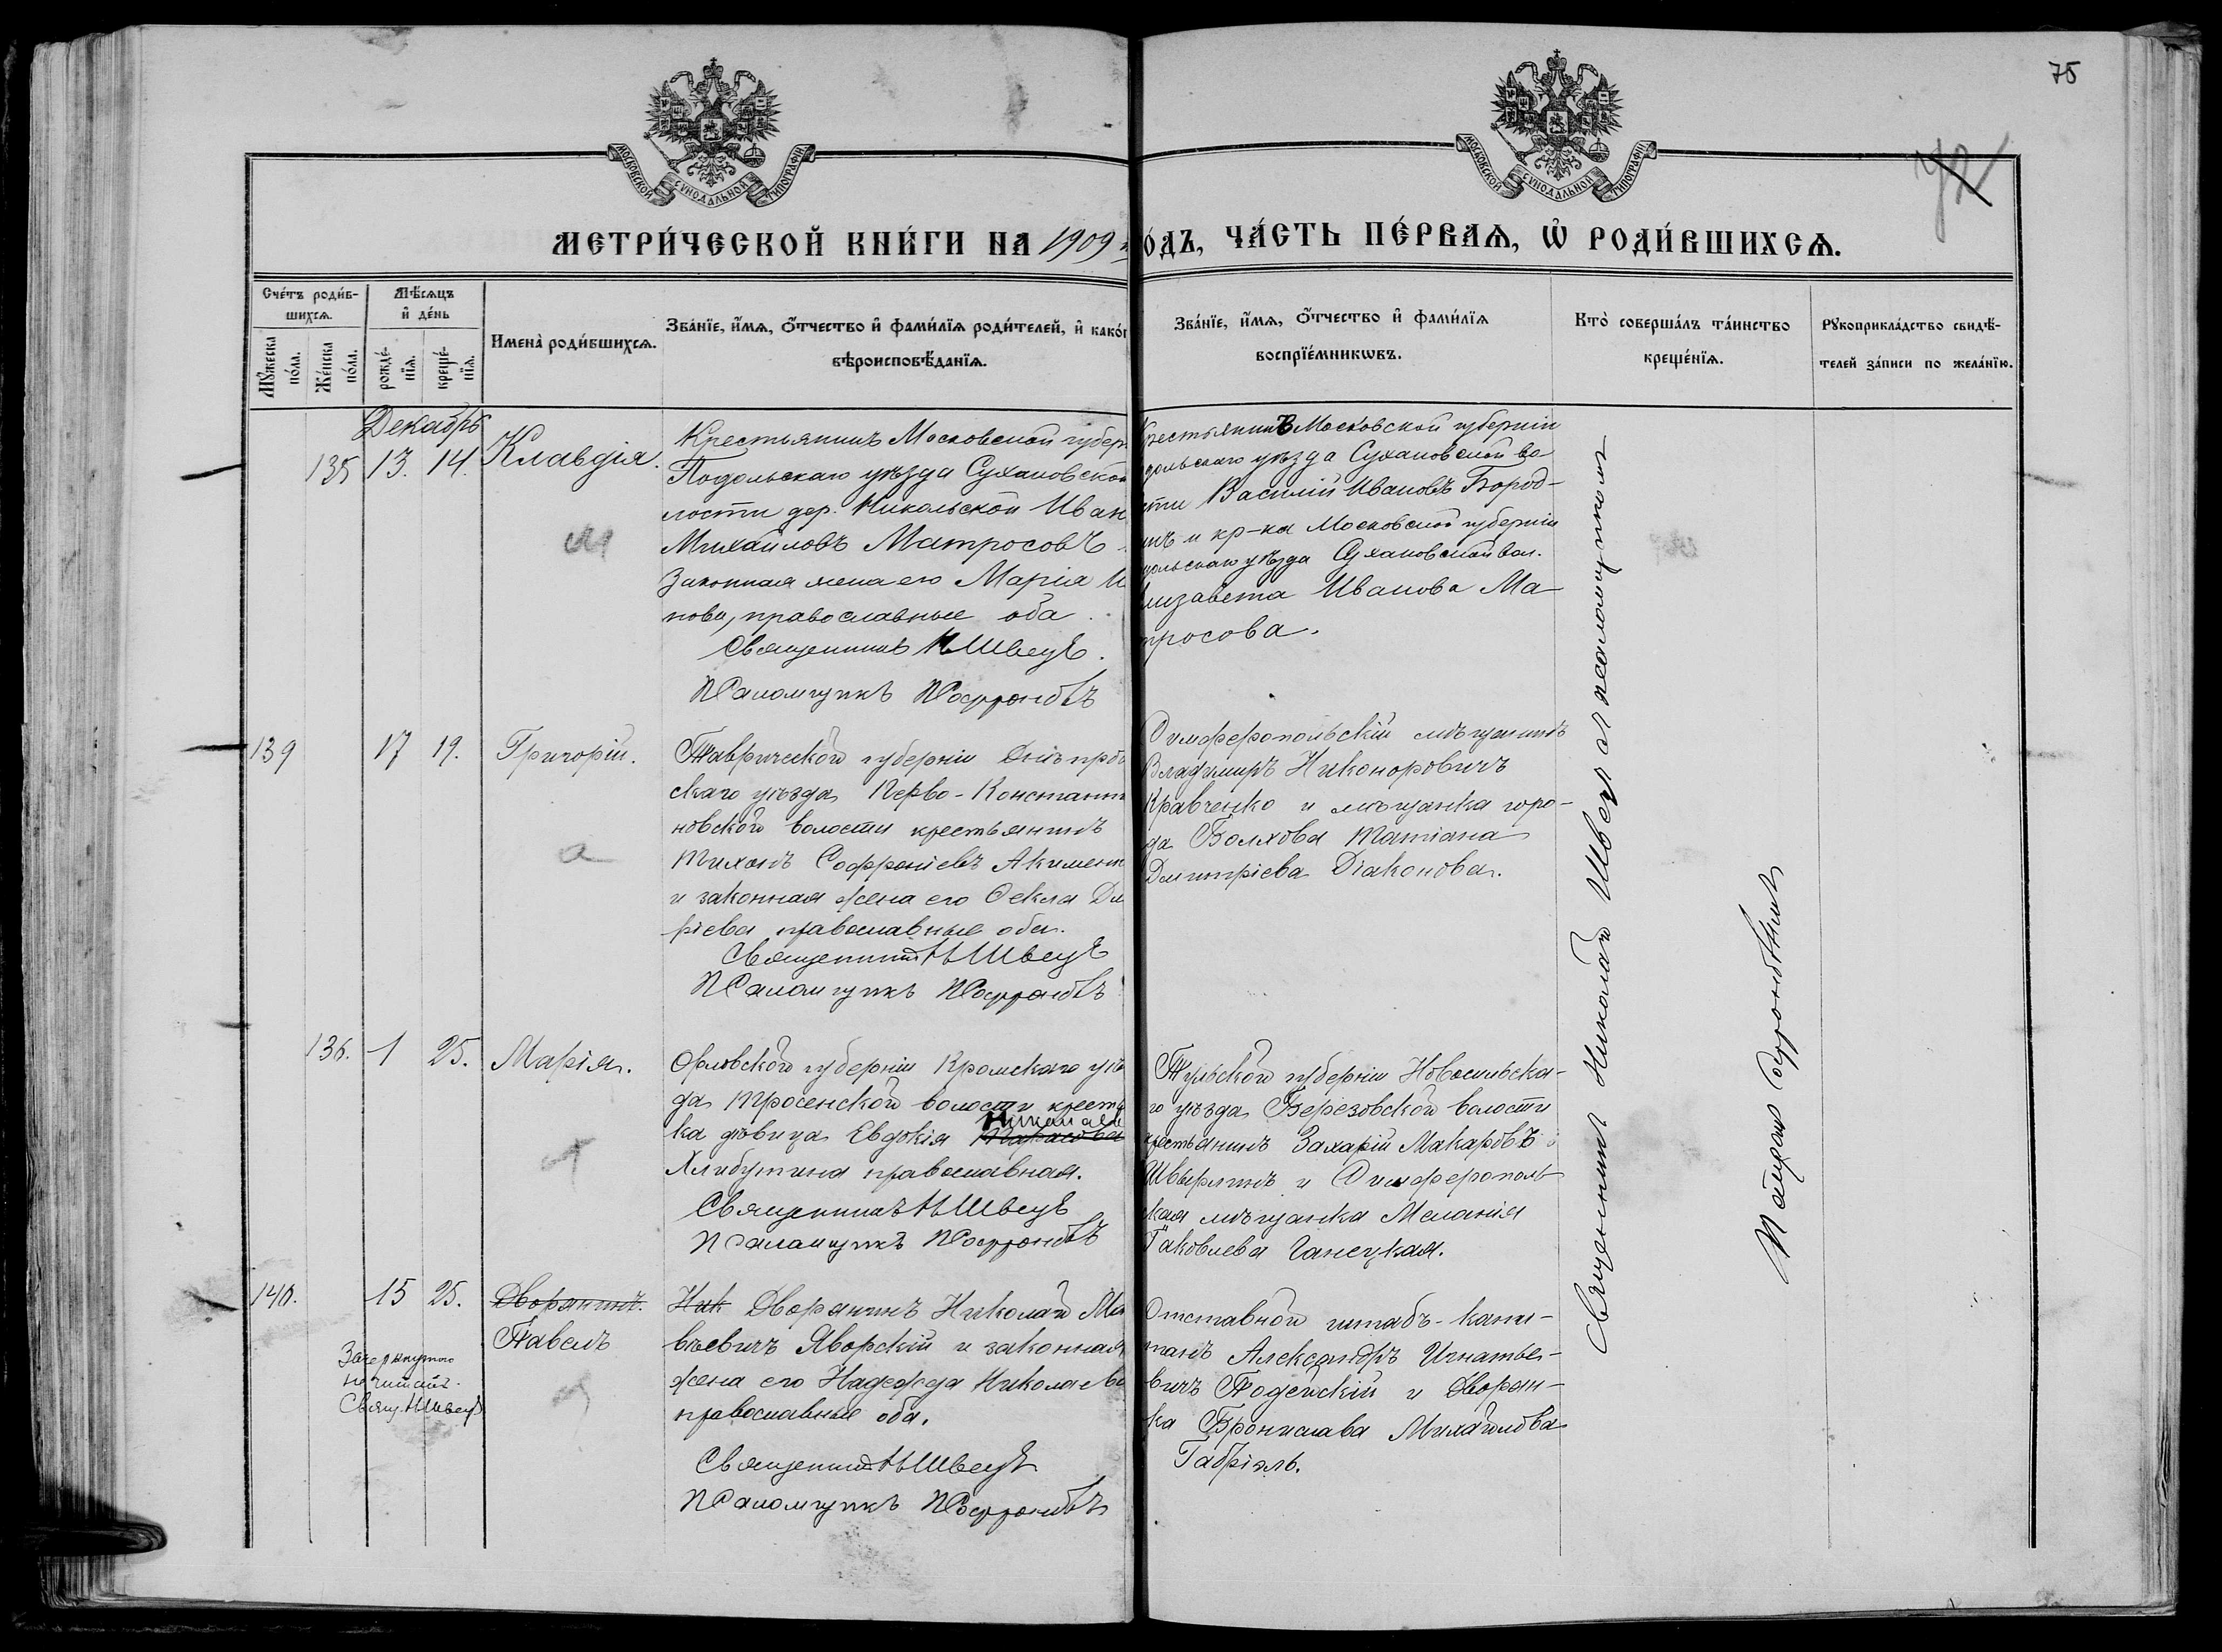 75
72
МОСКОВСКОЙ СѴНОДАЛЬНОЙ ТИПОГРАФІИ
МОСКОВСКОЙ СѴНОДАЛЬНОЙ ТИПОГРАФІИ
МЕТРИ́ЧЕСКОЙ КНИ́ГИ НА 1909
О́ДЪ, ЧА́СТЬ ПЕ́РВАѦ, Ѡ҆ РОДИ́ВШИХСѦ.
Сче́тъ роди́в-
шихсѧ.
Мꙋ́жеска по́ла.
Же́нска по́ла.
Мѣ́сѧцъ
и҆ де́нь
рожде́-
нїѧ.
креще́-
нїѧ.
Имена̀ роди́вшихсѧ.
Зва́нїе, и҆́мѧ, ѻ҆́тчество и҆ фами́лїѧ роди́телей, и҆ како́г
вѣроисповѣ́данїѧ.
Зва́нїе, и҆́мѧ, ѻ҆́тчество и҆ фами́лїѧ
воспрїе́мникѡвъ.
Кто̀ соверша́лъ та́инство
креще́нїѧ.
Рꙋкоприкла́дство свидѣ́-
телей за́писи по жела́нїю.
Декабрь
135 13. 14. Клавдія.
Крестьянинъ Московской губерн
Подольскаго уѣзда Сухановской
лости дер. Никольской Иван
Михайловъ Матросовъ
Законная жена его Марія И
нова, православные оба.
Священникъ Н Швецъ.
Псаломщикъ П Софроновъ
Крестьянинъ Московской губерніи
дольскаго уѣзда Сухановской во-
сти Василій Ивановъ Бород-
инъ и кр-ка Московской губерніи
дольскаго уѣзда Сухановской вол.
лизавета Иванова Ма-
тросова.
139 17 19. Григорій.
Таврической губерніи Днѣпров
скаго уѣзда Перво-Константи
новской волости крестьянинъ
Тихонъ Софроніевъ Акимен
и законная жена его Ѳекла Дм
ріева православные оба.
Священникъ Н Швецъ
Псаломщикъ П Софроновъ
Симферопольскій мѣщанинъ
Владимиръ Никоноровичъ
Кравченко и мѣщанка горо-
да Болхова Татіана
Димитріева Діаконова.
136. 1 25. Марія.
Орловской губерніи Кромскаго уѣз
да Тросенской волости крестья
Николаев
ка дѣвица Евдокія Тарасова
Хлибутина православная.
Священникъ Н Швецъ
Псаломщикъ П Софроновъ
Тульской губерніи Новосильска-
го уѣзда Березовской волости
крестьянинъ Захарій Макаровъ
Швырлинъ и Симферополь-
ская мѣщанка Меланія
Іаковлева Ганецкая.
140. 15 25. Дворянинъ.
Павелъ
Зачеркнутого
не читать.
Свящ. Н Швецъ
Ник Дворянинъ Николай Ма
вѣевичъ Яворскій и законная
жена его Надежда Николаева
православные оба.
Священникъ Н Швецъ
Псаломщикъ П Софроновъ
Отставной штабъ-капи-
танъ Александръ Игнатье-
вичъ Подейскій и Дворян-
ка Бронислава Михайлова
Габріэль.
Священникъ Николай Швецъ съ псаломщикомъ
Павломъ Софроновымъ